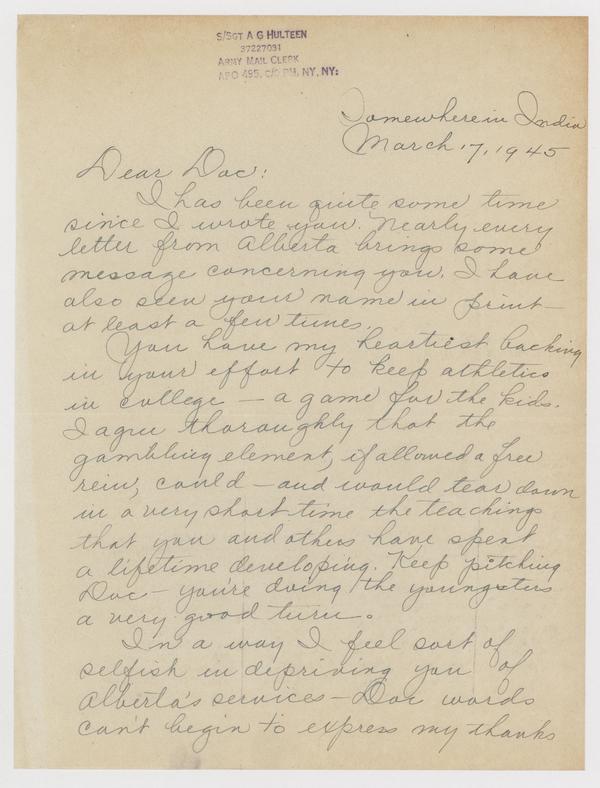 S/SGT A G HULTEEN
37227031
ARMY MAIL CLERK
APO 495, C/O PM, NY, NY:
Somewhere in India
March 17, 1945
Dear Doc:
I has been quite some time
since I wrote you. Nearly every
letter from Alberta brings some
message concerning you. I have
also seen your name in print—
at least a few times.
You have my heartiest backing
in your effort to keep athletics
in college — a game for the kids.
I agree thoroughly that the
gambling element, if allowed a free
rein, could — and would tear down
in a very short time the teachings
that you and others have spent
a lifetime developing. Keep pitching
Doc — you're doing the youngsters
a very good turn.
In a way I feel sort of
selfish in depriving you of
Alberta's services — Doc words
can't begin to express my thanks